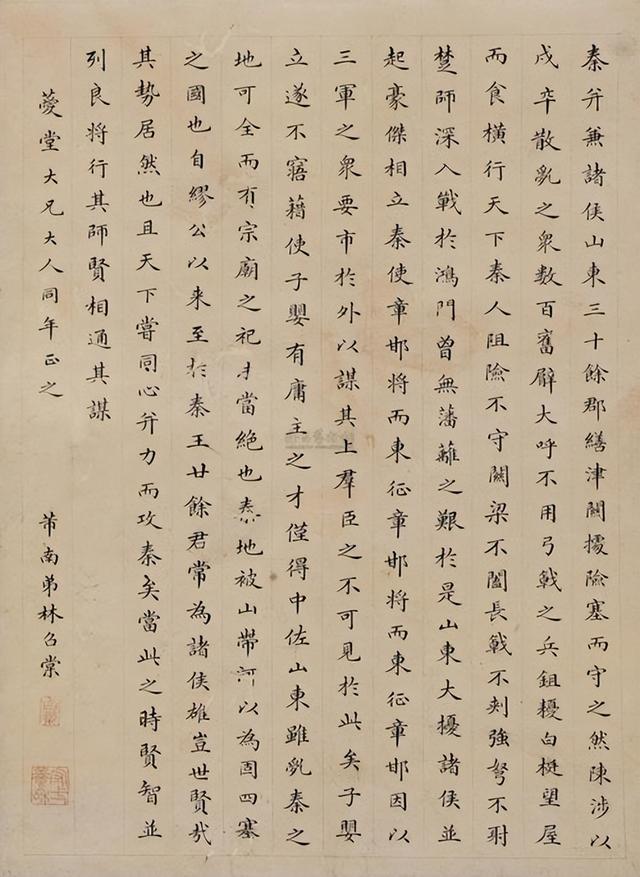 秦并兼諸侯山東三十餘郡繕津關據險塞而守之然陳涉以
戍卒散亂之衆數百奮臂大呼不用弓戟之兵鉏耰白梃望屋
而食橫行天下秦人阻險不守關梁不闔長戟不刺強弩不射
楚師深入戰於鴻門曾無藩蘺之艱於是山東大擾諸侯並
起豪傑相立秦使章邯將而東征章邯將而東征章邯因以
三軍之衆要市於外以謀其上羣臣之不可見於此矣子嬰
立遂不寤藉使子嬰有庸主之才僅得中佐山東雖亂秦之
地可全而有宗廟之祀未當絶也秦地被山帶河以為固四塞
之國也自繆公以来至於秦王廿餘君常為諸侯雄豈世賢㢤
其勢居然也且天下嘗同心并力而攻秦矣當此之時賢智並
列良將行其師賢相通其謀
薆堂大兄大人同年正之
茀南弟林召棠